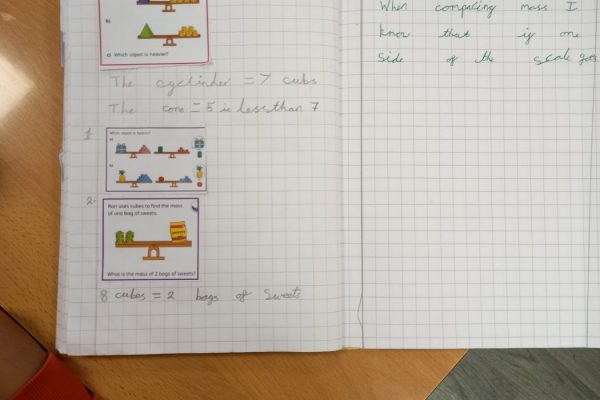 b)
c) Which object is heavier?
The cyclinder = 7 cubs
The cone = 5 is less than 7
1.
Which object is heavier?
a)
b)
2.
Ron uses cubes to find the mass
of one bag of sweets.
What is the mass of 2 bags of sweets?
8 cubes = 2 bags of Sweets
When compating mass I
know that if one
side of the scale goes